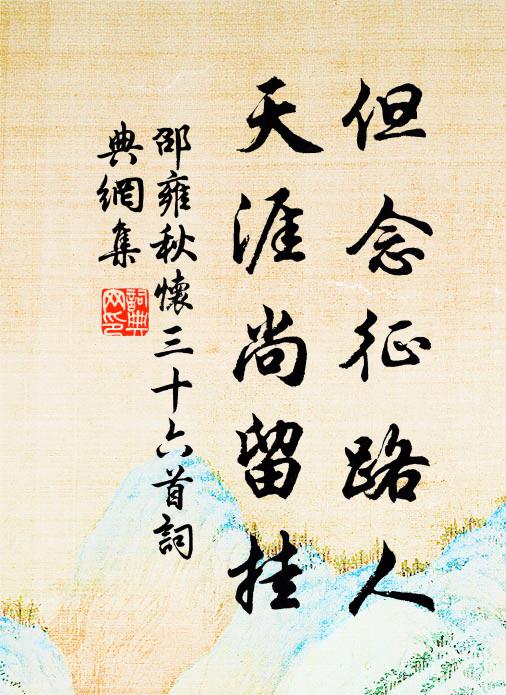 但念征路人
天涯尚留挂
邵雍秋懷三十六首詞
典網集
詞典網印